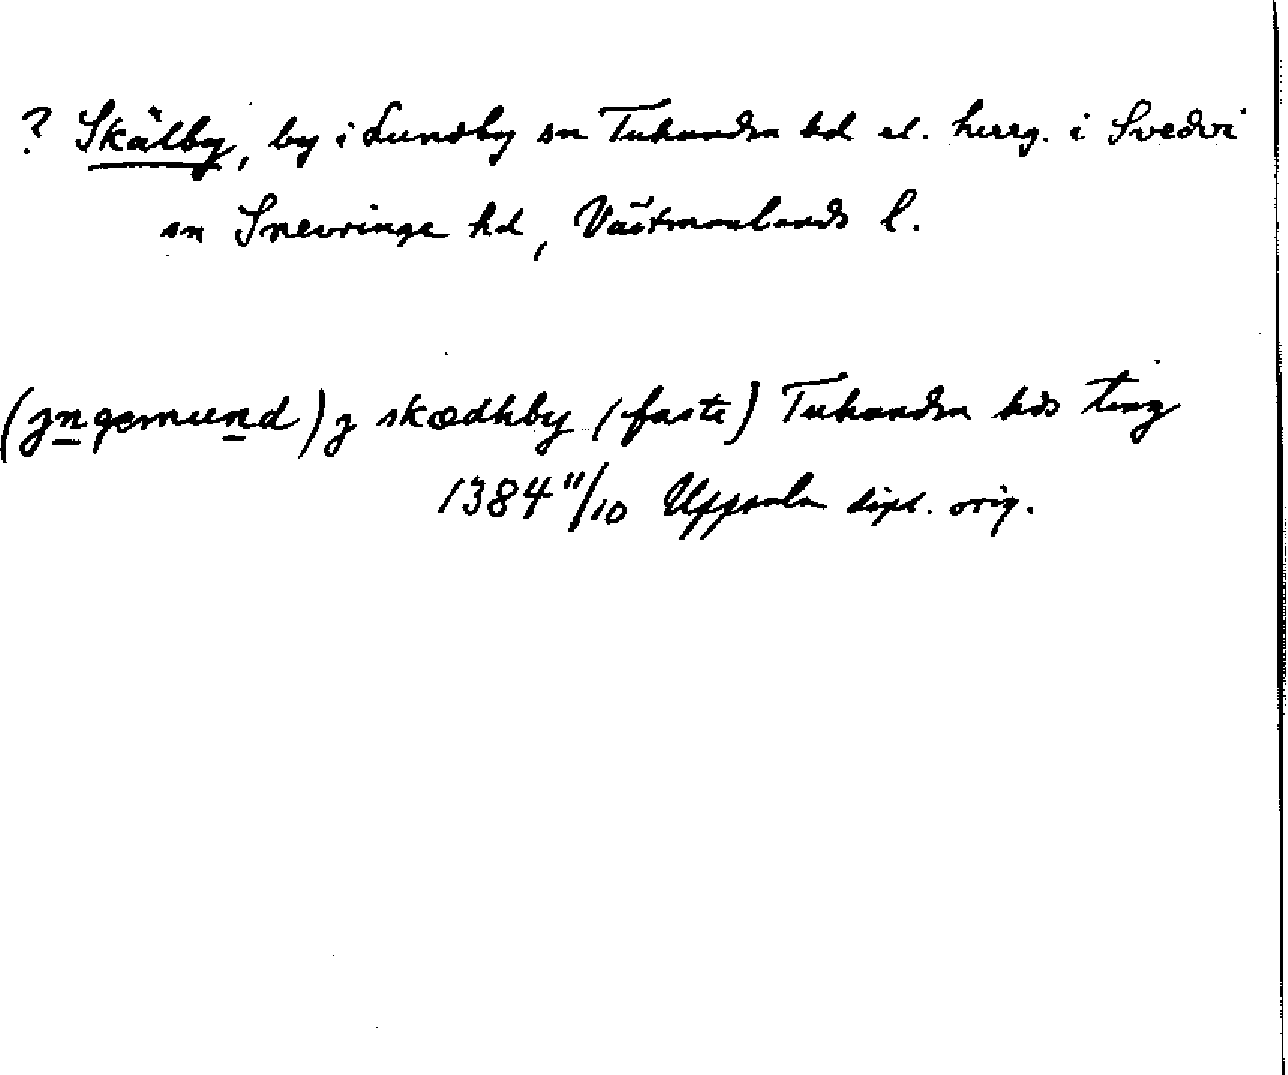 ? Skälby, by i Lundby sn Tuhundra hd el. herrg. i Svedvi
sn Snevringe hd, Västmanlands l.
(jngemund) j skædhby (faste) Tuhundra hds ting
1384 11/10 Uppsala dipl. orig.